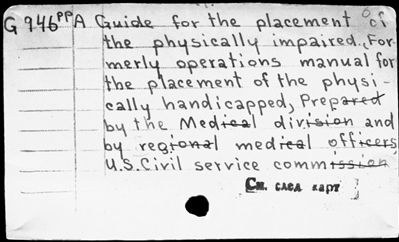 G 946ᵖᵖA Guide for the placement of
the physically impaired. For-
merly operations manual for
the placement of the physi-
cally handicapped, Prepared
by the Medical division and
by regional medical officers
U.S. Civil service commission
См. след карт